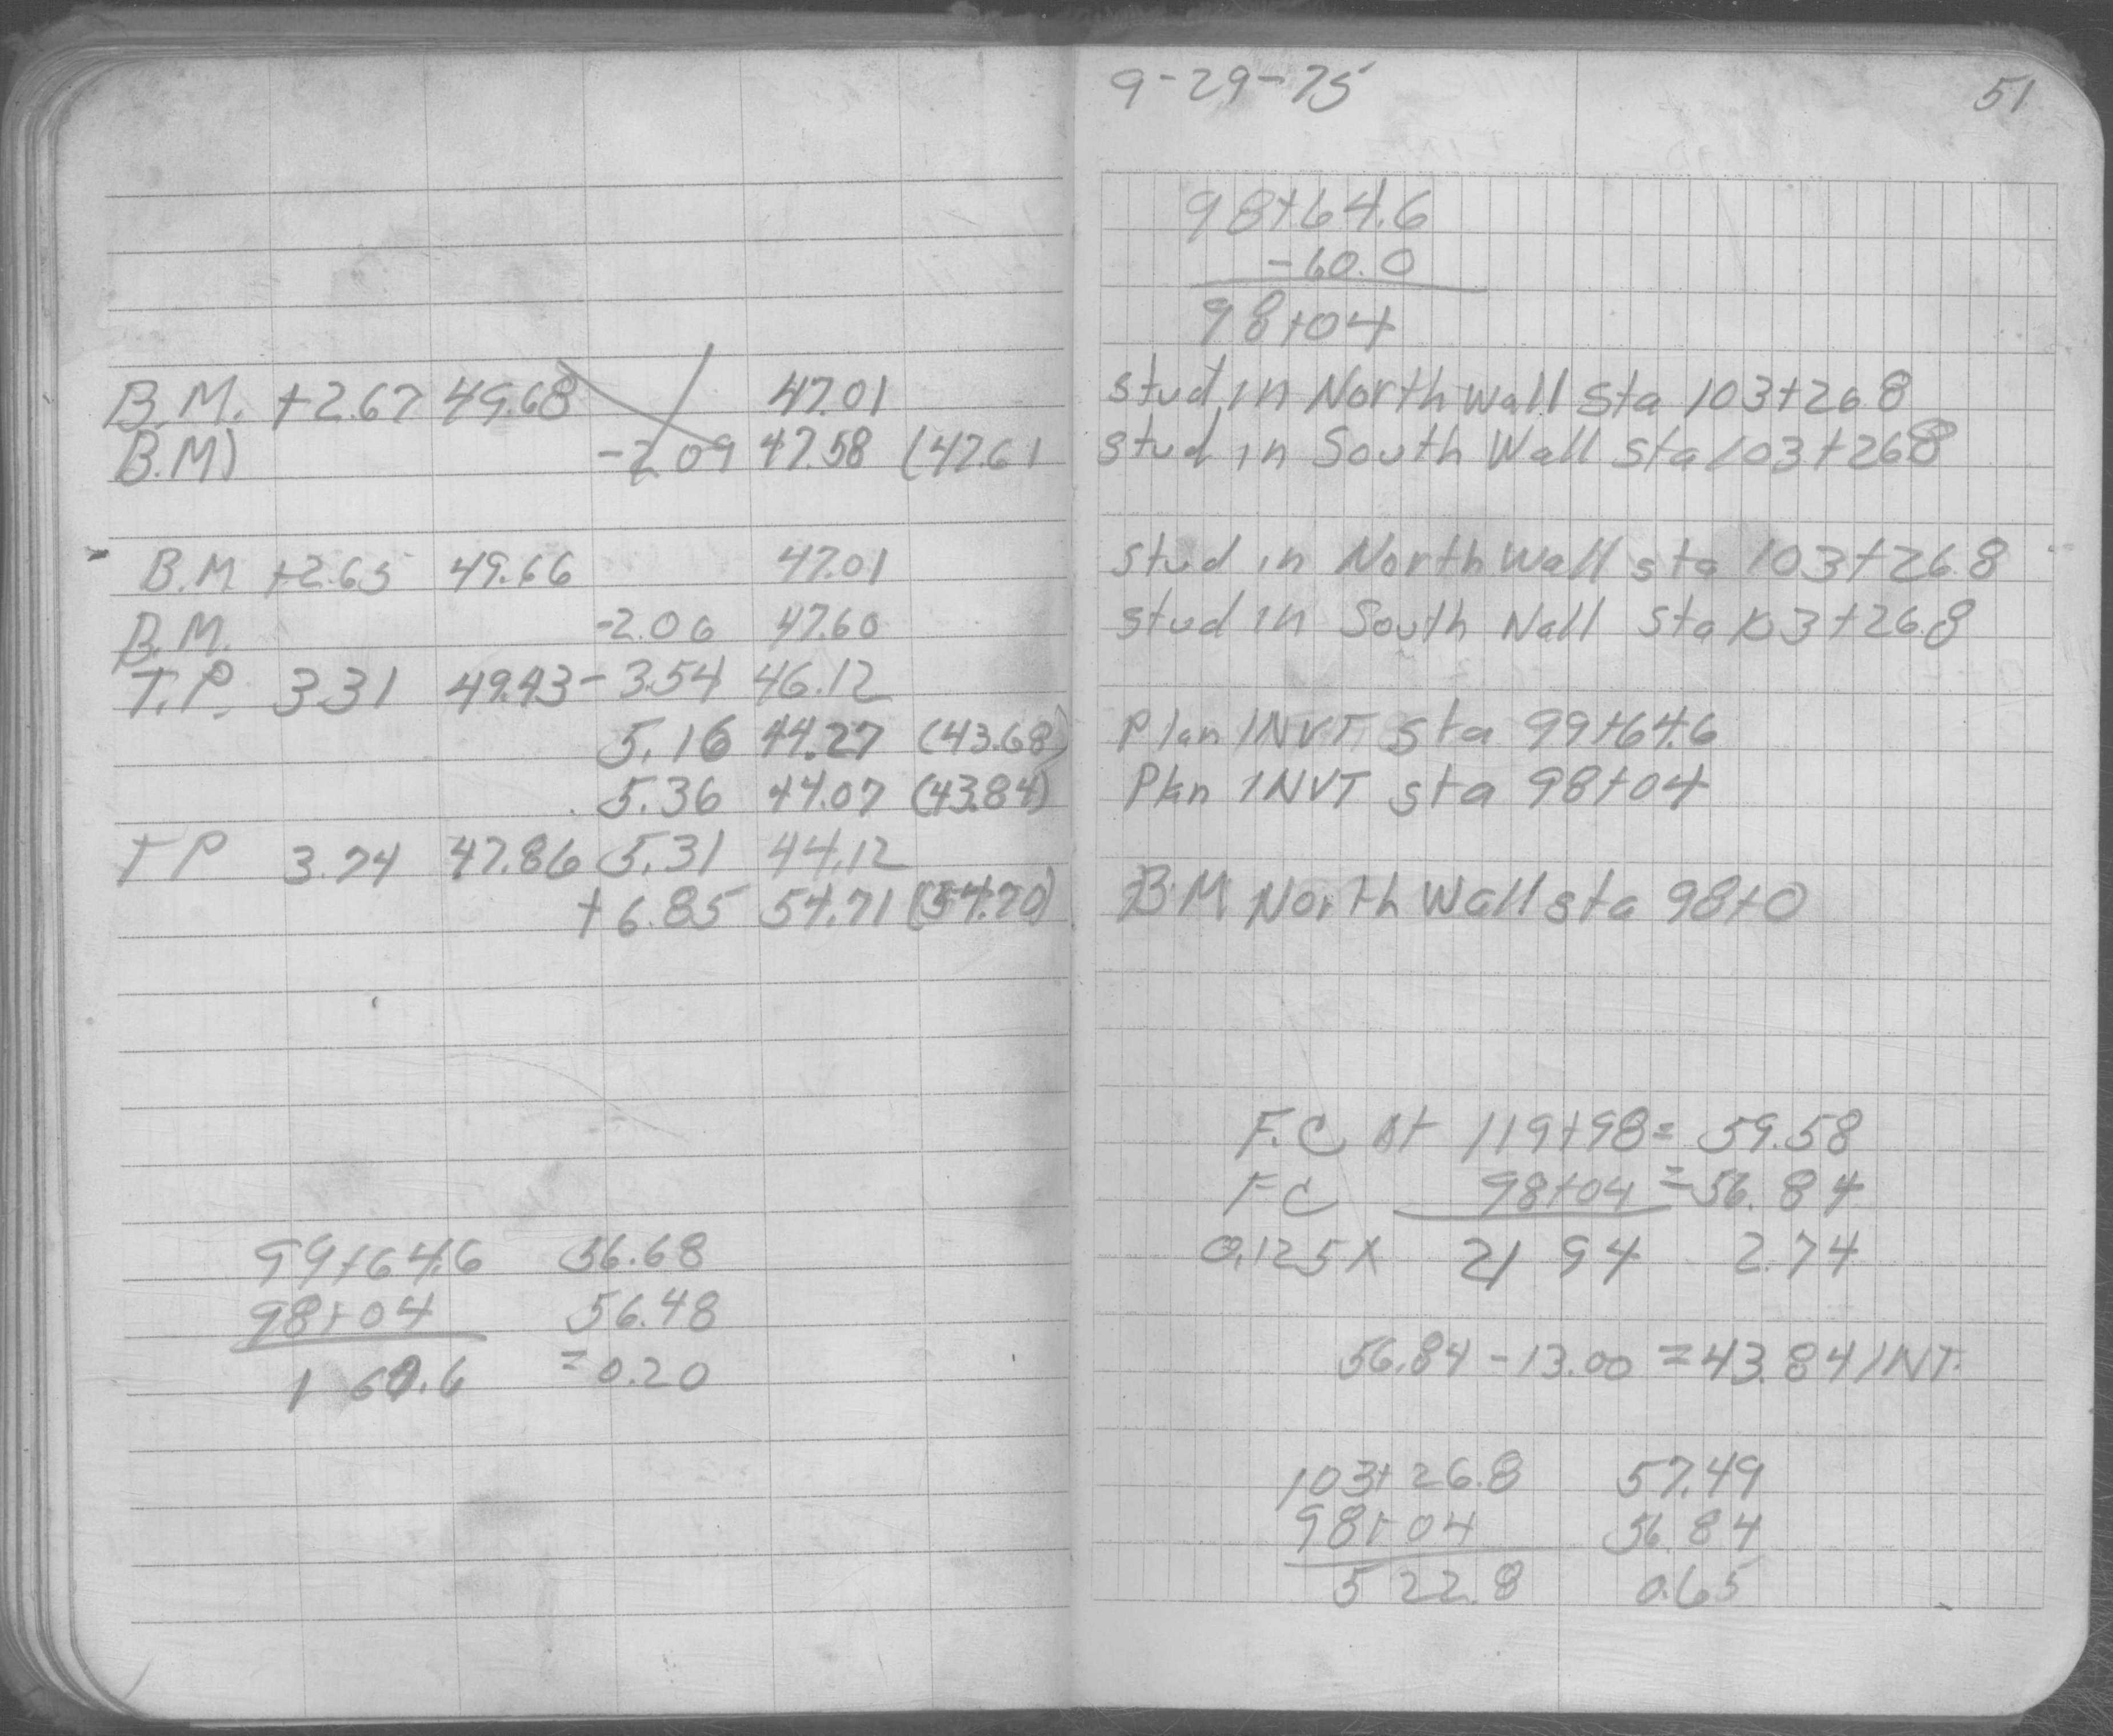 9-29-75 51
98+64.6
-60.0
98+04
B.M. +2.67 49.68 47.01 stud in North wall Sta 103+26.8
B.M) -2.09 47.58 (47.61 stud in South Wall sta 103+26.8
B.M +2.65 49.66 47.01 stud in North Wall sta 103+26.8
B.M. -2.06 47.60 stud in South Wall Sta 103+26.8
T.P. 3.31 49.43 -3.54 46.12
5.16 44.27 (43.68) Plan INVT Sta 99+64.6
5.36 44.07 (43.84) Plan INVT sta 98+04
TP 3.74 47.86 5.31 44.12
+6.85 54.71 (54.70) B.M North Wall sta 98+0
F.C At 119+98 = 59.58
FC 98+04 = 56.84
0.125 X 21 94 2.74
99+64.6 56.68
98+04 56.48
1 60.6 = 0.20
56.84 - 13.00 = 43.84 INT.
103+26.8 57.49
98+04 56.84
5 22.8 0.65